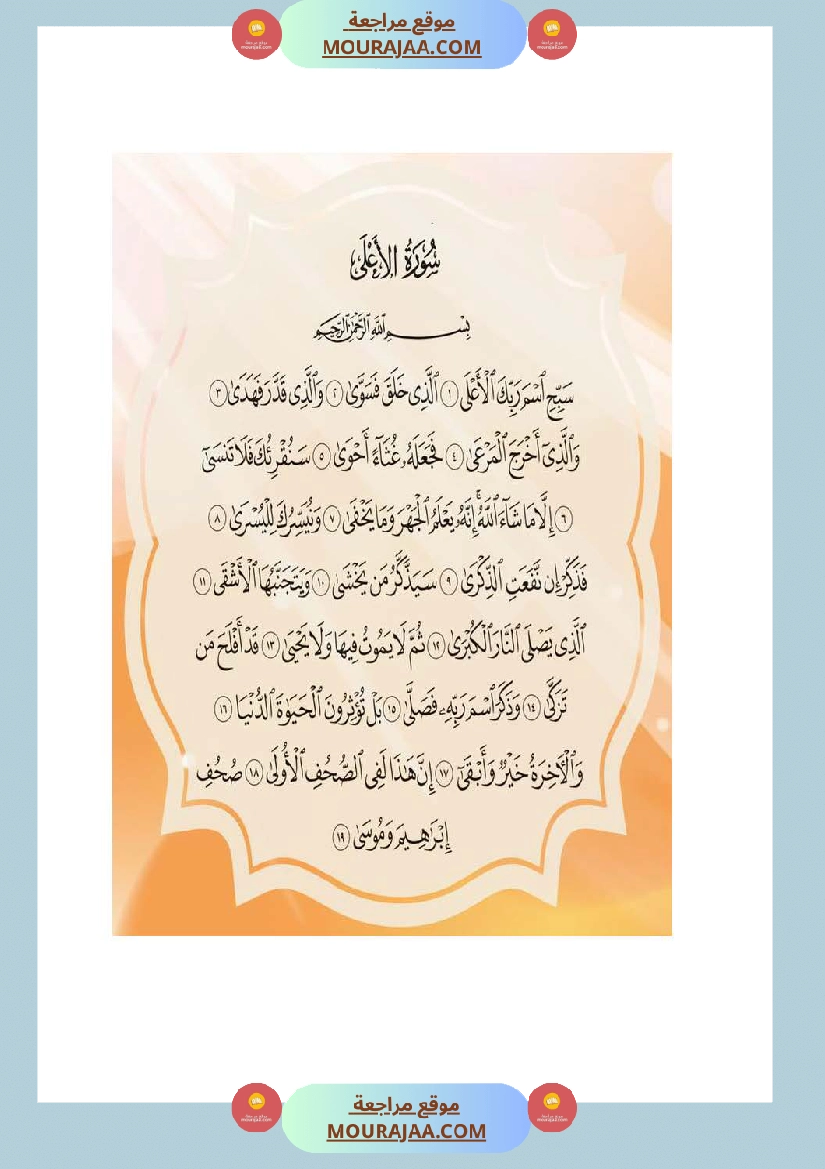 موقع مراجعة
MOURAJAA.COM
سُورَةُ الأَعْلَىٰ
بِسْمِ اللَّهِ الرَّحْمَٰنِ الرَّحِيمِ
سَبِّحِ ٱسْمَ رَبِّكَ ٱلْأَعْلَى ١ ٱلَّذِى خَلَقَ فَسَوَّىٰ ٢ وَٱلَّذِى قَدَّرَ فَهَدَىٰ ٣
وَٱلَّذِىٓ أَخْرَجَ ٱلْمَرْعَىٰ ٤ فَجَعَلَهُۥ غُثَآءً أَحْوَىٰ ٥ سَنُقْرِئُكَ فَلَا تَنسَىٰٓ
٦ إِلَّا مَا شَآءَ ٱللَّهُ ۚ إِنَّهُۥ يَعْلَمُ ٱلْجَهْرَ وَمَا يَخْفَىٰ ٧ وَنُيَسِّرُكَ لِلْيُسْرَىٰ ٨
فَذَكِّرْ إِن نَّفَعَتِ ٱلذِّكْرَىٰ ٩ سَيَذَّكَّرُ مَن يَخْشَىٰ ١٠ وَيَتَجَنَّبُهَا ٱلْأَشْقَى ١١
ٱلَّذِى يَصْلَى ٱلنَّارَ ٱلْكُبْرَىٰ ١٢ ثُمَّ لَا يَمُوتُ فِيهَا وَلَا يَحْيَىٰ ١٣ قَدْ أَفْلَحَ مَن
تَزَكَّىٰ ١٤ وَذَكَرَ ٱسْمَ رَبِّهِۦ فَصَلَّىٰ ١٥ بَلْ تُؤْثِرُونَ ٱلْحَيَوٰةَ ٱلدُّنْيَا ١٦
وَٱلْأَخِرَةُ خَيْرٌ وَأَبْقَىٰٓ ١٧ إِنَّ هَٰذَا لَفِى ٱلصُّحُفِ ٱلْأُولَىٰ ١٨ صُحُفِ
إِبْرَٰهِيمَ وَمُوسَىٰ ١٩
موقع مراجعة
MOURAJAA.COM